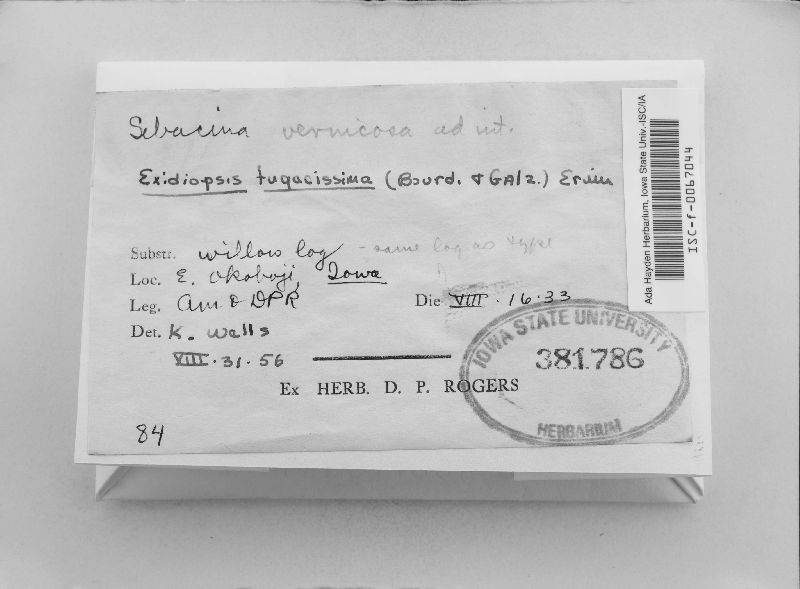 Sebacina vernicosa ad int.
Exidiopsis fugacissima (Bourd. & Galz.) Ervin
Substr. willow log - same log as type
Loc. E. Okoboji, Iowa
Leg. Am & DPR
Die VIII · 16 · 33
Det. K. Wells
VIII · 31 · 56
Ex HERB. D. P. ROGERS
84
IOWA STATE UNIVERSITY
381786
HERBARIUM
Ada Hayden Herbarium, Iowa State Univ.-ISC/IA
ISC-f-0067044